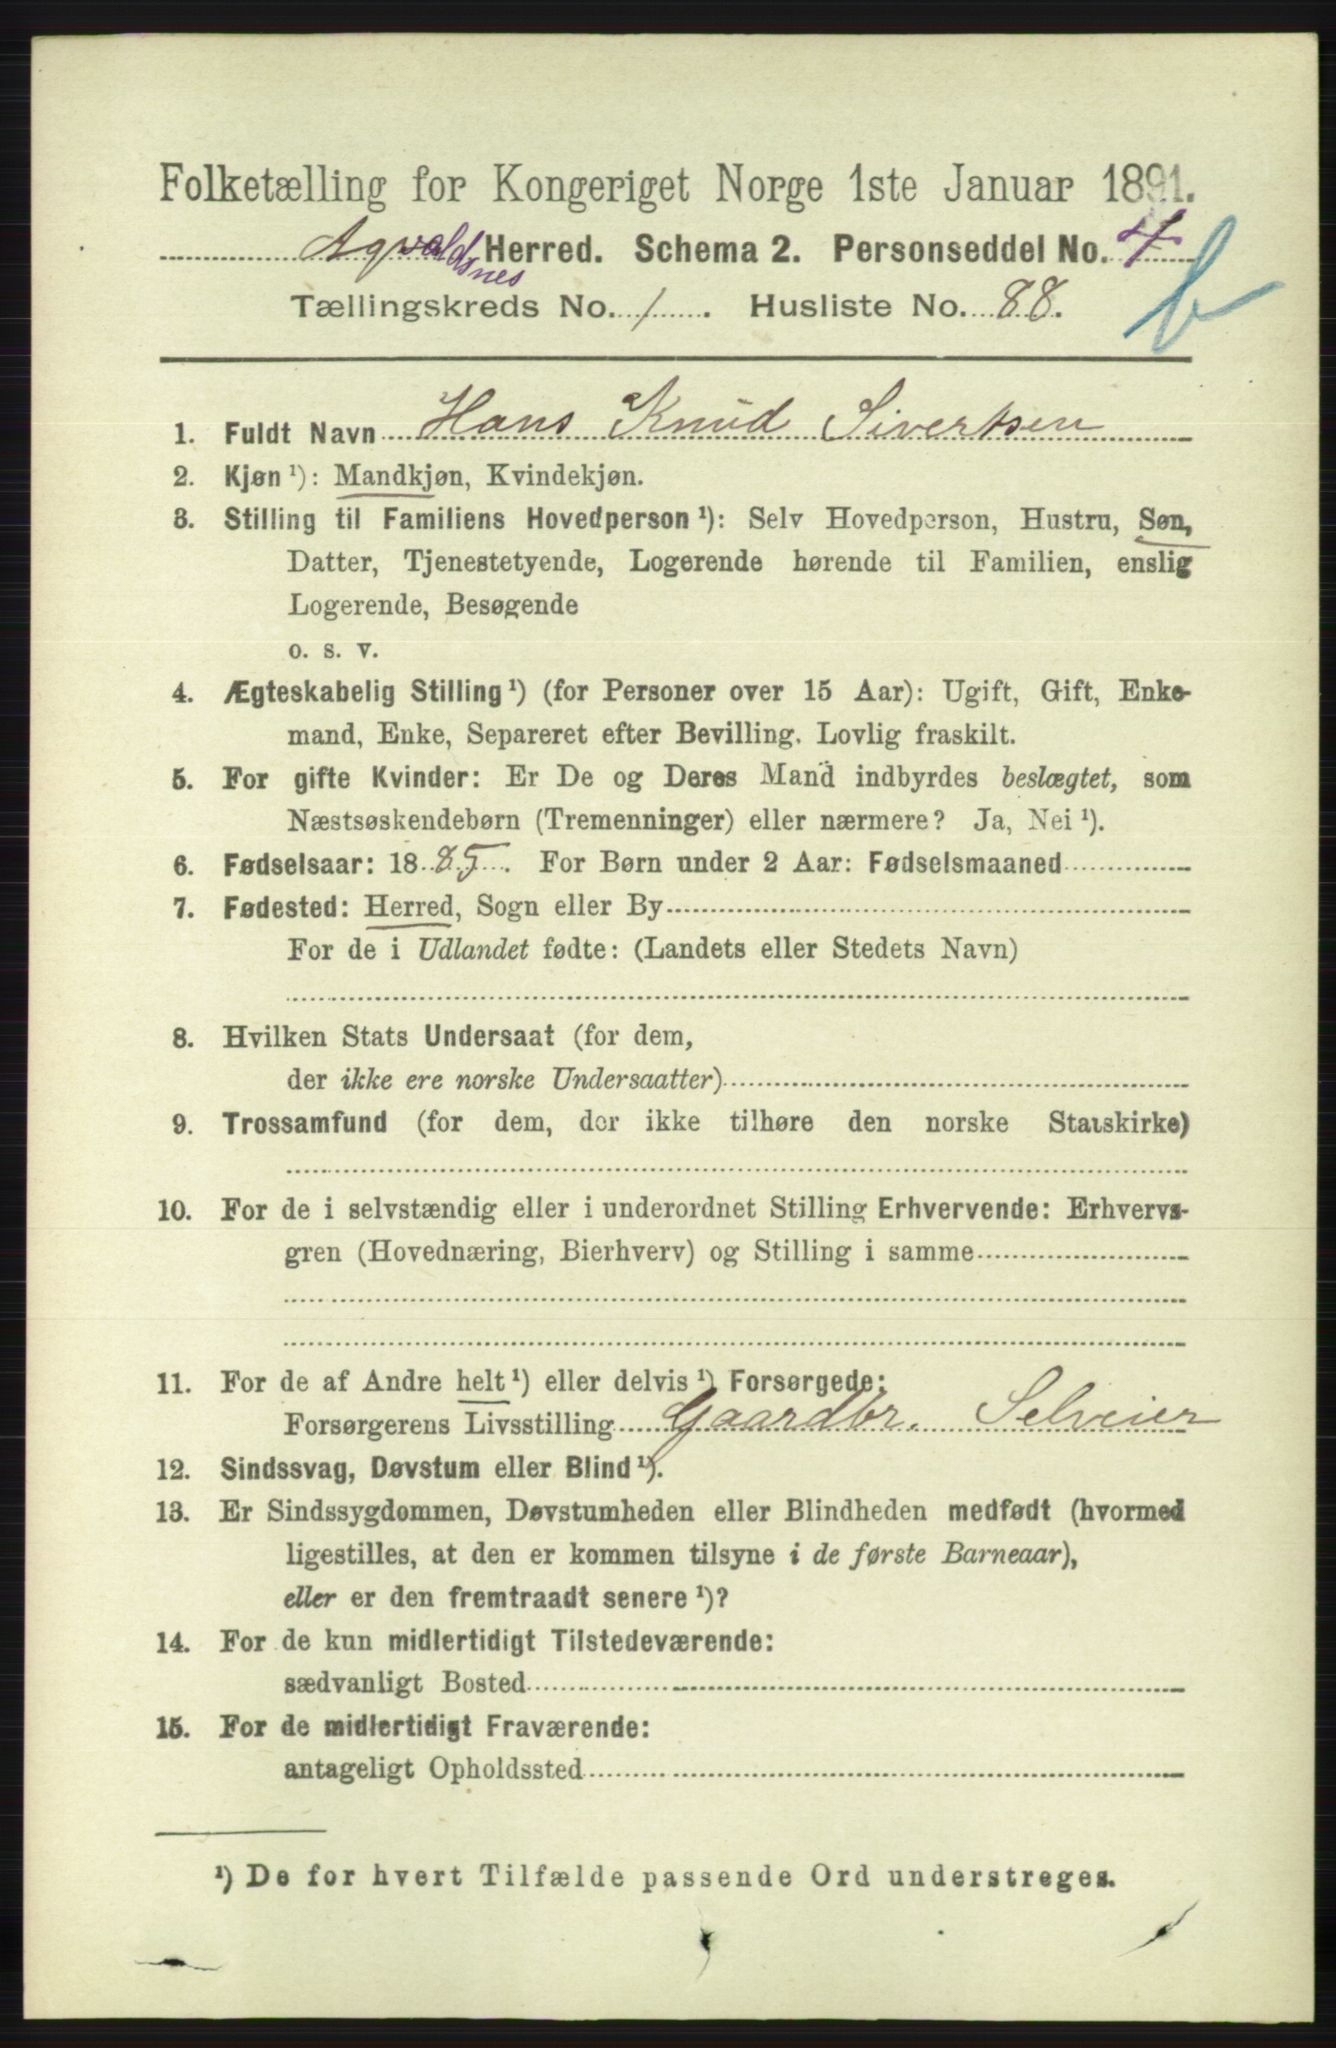 Folketælling for Kongeriget Norge 1ste Januar 1891.
Agvaldsnes Herred. Schema 2. Personseddel No. 4
Tællingskreds No. 1. Husliste No. 88. b
1. Fuldt Navn Hans Knud Sivertsen
2. Kjøn ¹): Mandkjøn, Kvindekjøn.
3. Stilling til Familiens Hovedperson ¹): Selv Hovedperson, Hustru, Søn,
Datter, Tjenestetyende, Logerende hørende til Familien, enslig
Logerende, Besøgende
o. s. v.
4. Ægteskabelig Stilling ¹) (for Personer over 15 Aar): Ugift, Gift, Enke-
mand, Enke, Separeret efter Bevilling. Lovlig fraskilt.
5. For gifte Kvinder: Er De og Deres Mand indbyrdes beslægtet, som
Næstsøskendebørn (Tremenninger) eller nærmere? Ja, Nei ¹).
6. Fødselsaar: 1885. For Børn under 2 Aar: Fødselsmaaned
7. Fødested: Herred, Sogn eller By
For de i Udlandet fødte: (Landets eller Stedets Navn)
8. Hvilken Stats Undersaat (for dem,
der ikke ere norske Undersaatter)
9. Trossamfund (for dem, der ikke tilhøre den norske Statskirke)
10. For de i selvstændig eller i underordnet Stilling Erhvervende: Erhvervs-
gren (Hovednæring, Bierhverv) og Stilling i samme
11. For de af Andre helt ¹) eller delvis ¹) Forsørgede:
Forsørgerens Livsstilling Gaardbr. Selveier
12. Sindssvag, Døvstum eller Blind ¹).
13. Er Sindssygdommen, Døvstumheden eller Blindheden medfødt (hvormed
ligestilles, at den er kommen tilsyne i de første Barneaar),
eller er den fremtraadt senere ¹)?
14. For de kun midlertidigt Tilstedeværende:
sædvanligt Bosted
15. For de midlertidigt Fraværende:
antageligt Opholdssted
¹) De for hvert Tilfælde passende Ord understreges.